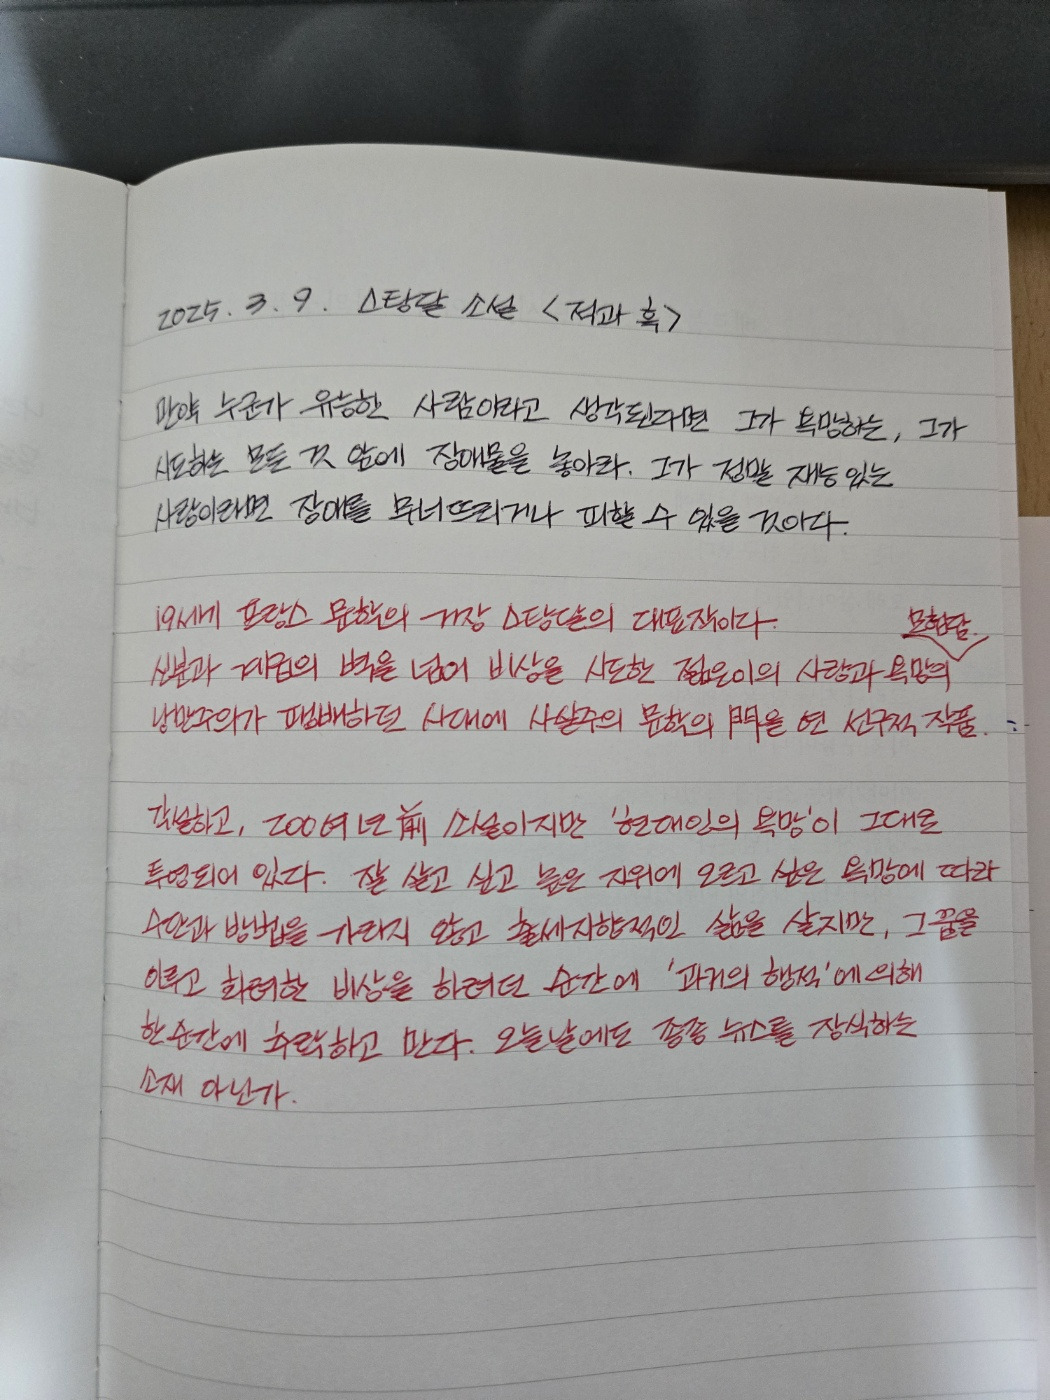 2025. 3. 9. 스탕달 소설 <적과 흑>
만약 누군가 유능한 사람이라고 생각된다면 그가 욕망하는, 그가
시도하는 모든 것 앞에 장애물을 놓아라. 그가 정말 재능 있는
사람이라면 장애를 무너뜨리거나 피할 수 있을 것이다.
19세기 프랑스 문학의 거장 스탕달의 대표작이다.
모험담.
신분과 계급의 벽을 넘어 비상을 시도한 젊은이의 사랑과 욕망의
낭만주의가 팽배하던 시대에 사실주의 문학의 門을 연 선구적 작품.
각설하고, 200여년 前 소설이지만 '현대인의 욕망'이 그대로
투영되어 있다. 잘 살고 싶고 높은 지위에 오르고 싶은 욕망에 따라
수단과 방법을 가리지 않고 출세지향적인 삶을 살지만, 그 꿈을
이루고 화려한 비상을 하려던 순간에 '과거의 행적'에 의해
한순간에 추락하고 만다. 오늘날에도 종종 뉴스를 장식하는
소재 아닌가.